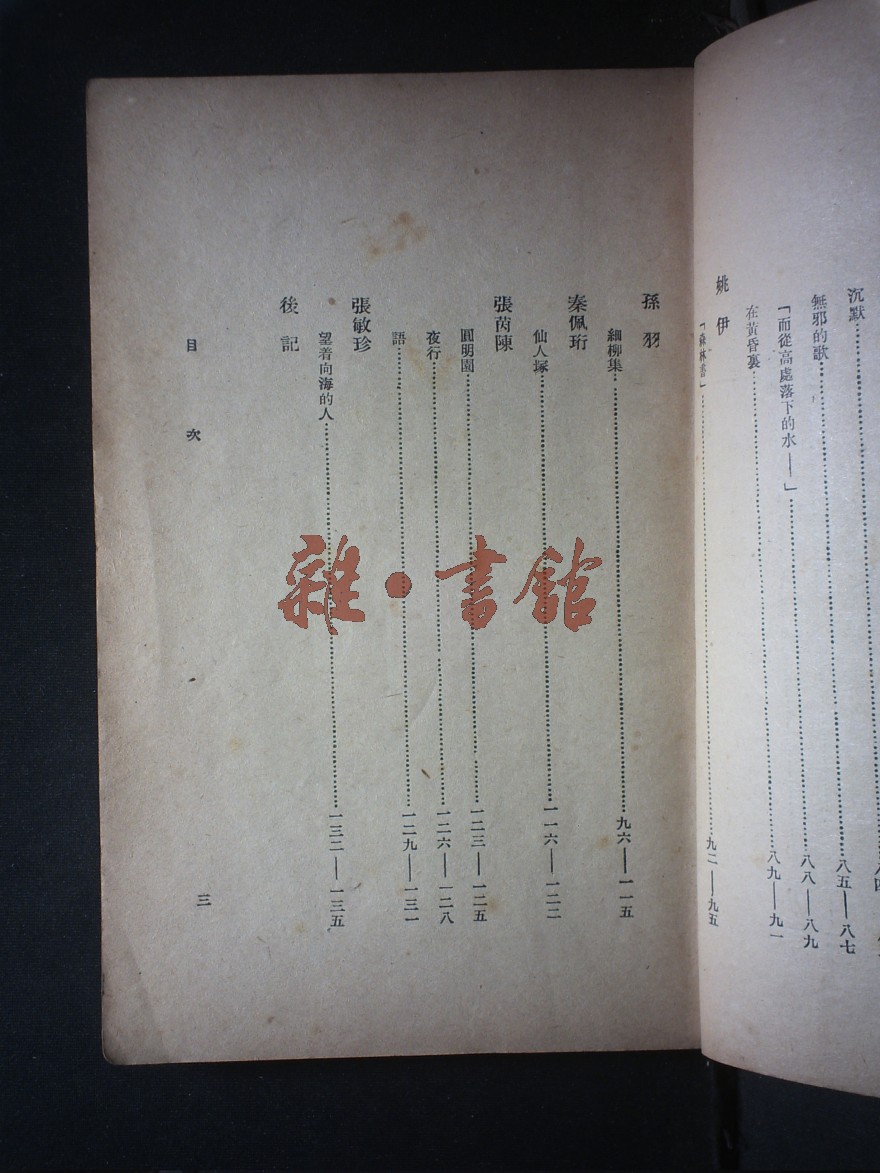 沉默……八五——八七
無邪的歌……八八——八九
「而從高處落下的水——」……八九——九一
在黃昏裏
姚伊
「森林書」……九二——九五
孫羽
細柳集……九六——一一五
秦佩珩
仙人塚……一一六——一二二
張茵陳
圓明園……一二三——一二五
夜行……一二六——一二八
語……一二九——一三一
張敏珍
望着向海的人……一三二——一三五
後記
目次
三
雜·書館